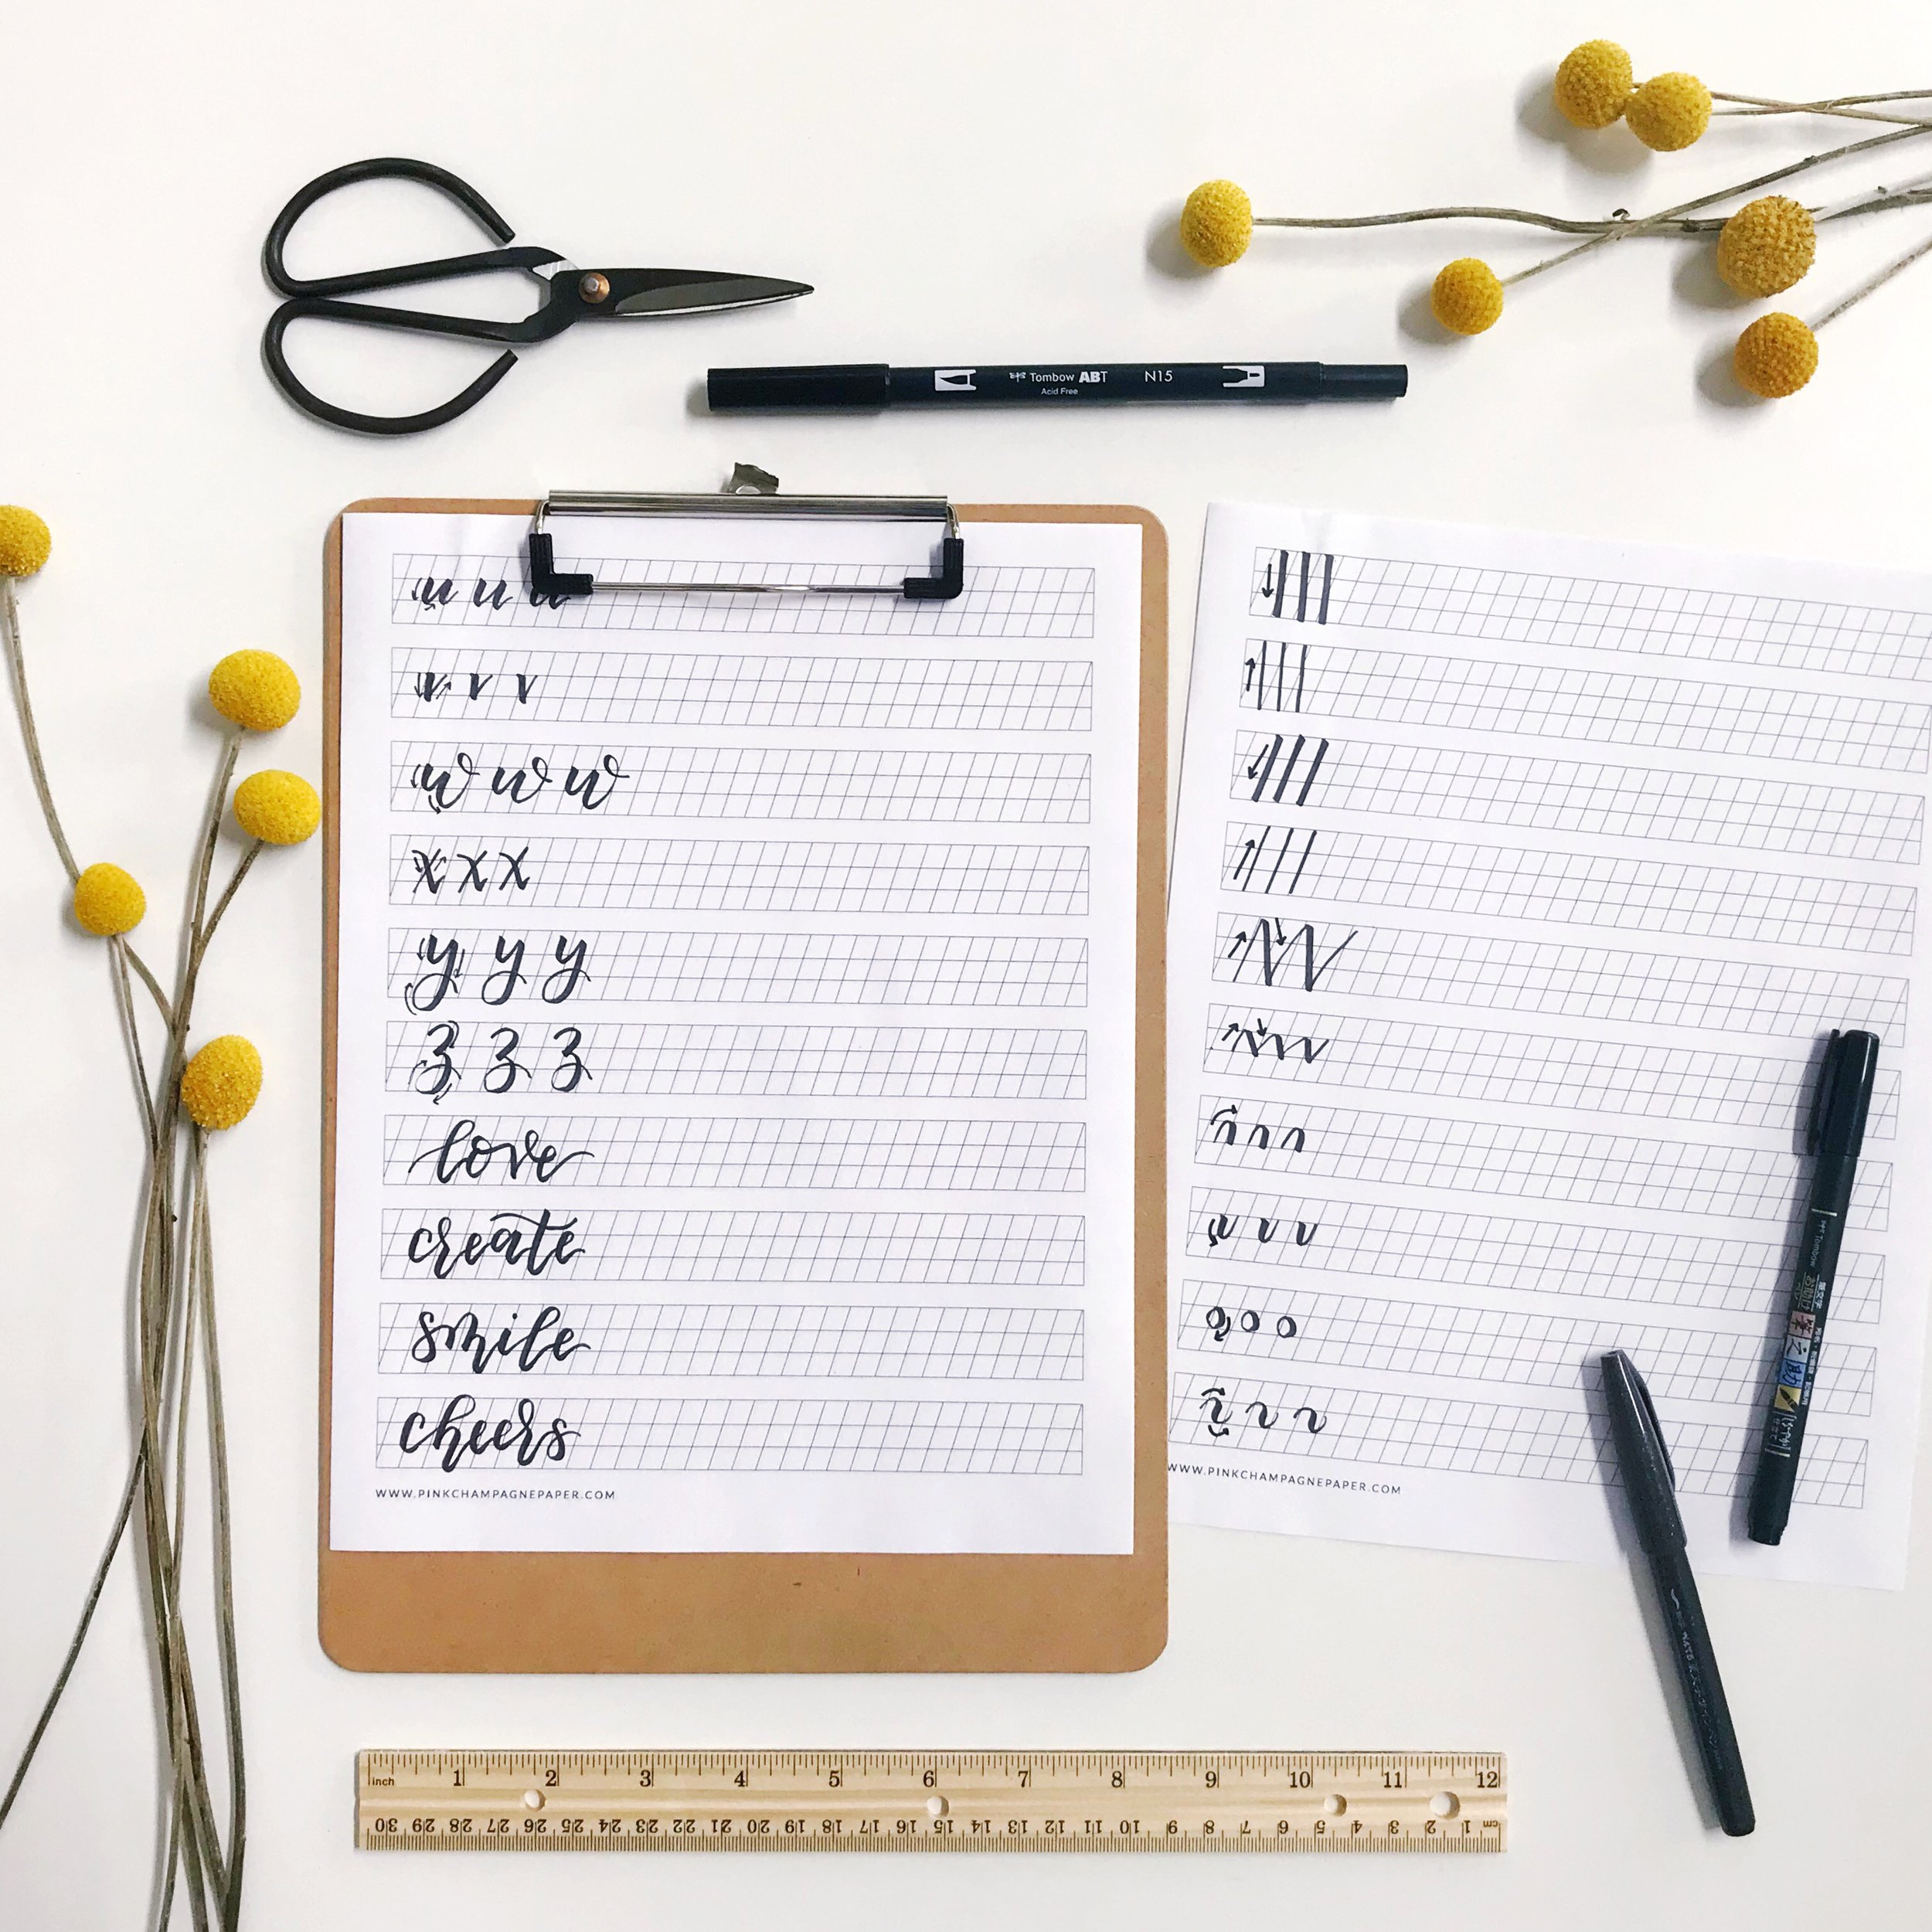 Tombow ABT N15
Acid Free
u u u
v v v
w w w
x x x
y y y
z z z
love
create
smile
cheers
WWW.PINKCHAMPAGNEPAPER.COM
WWW.PINKCHAMPAGNEPAPER.COM
Tombow
inch 1 2 3 4 5 6 7 8 9 10 11 12
30 29 28 27 26 25 24 23 22 21 20 19 18 17 16 15 14 13 12 11 10 9 8 7 6 5 4 3 2 1 cm